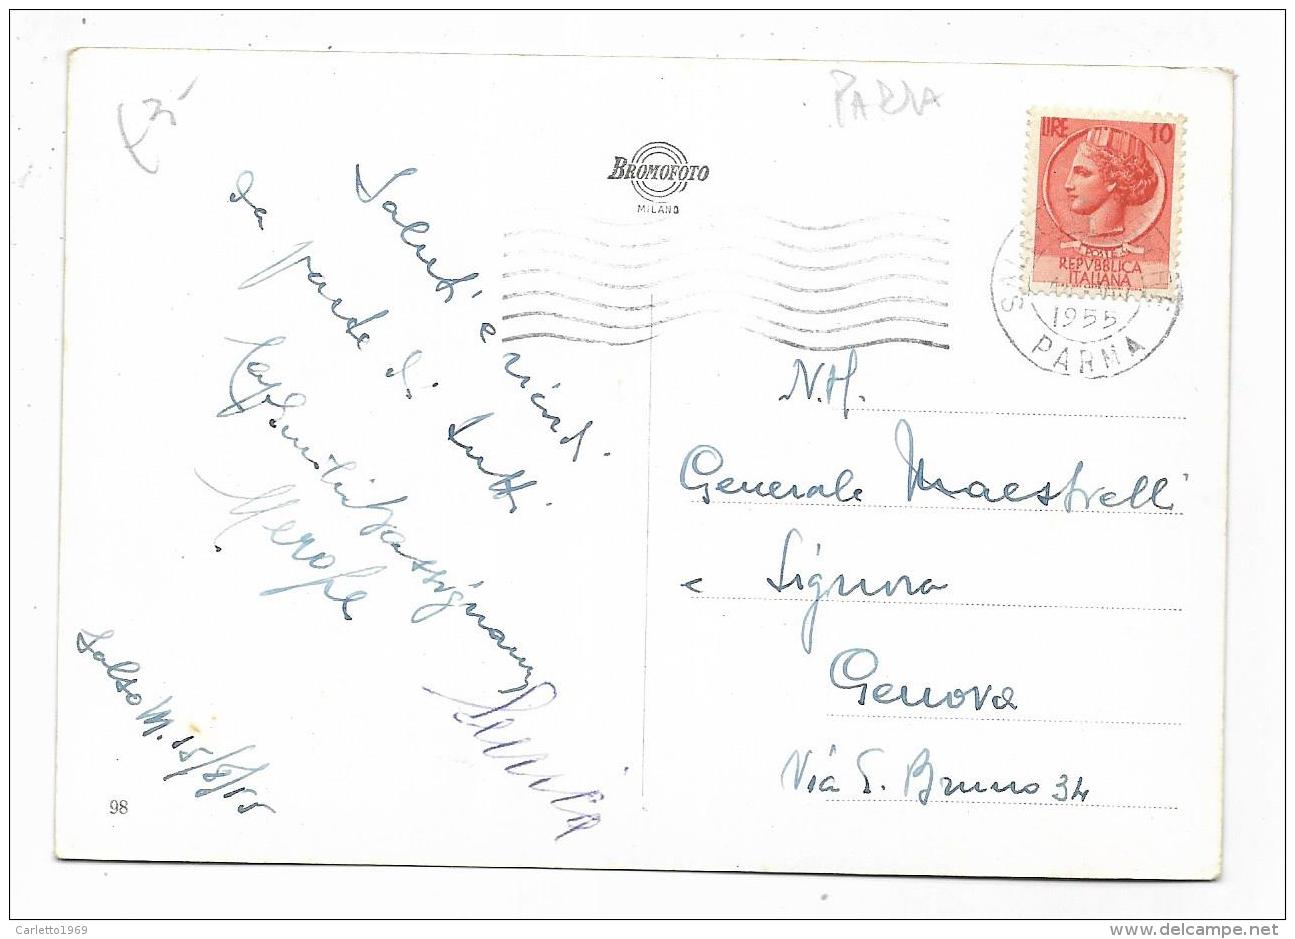 PARMA
BROMOFOTO
MILANO
LIRE 10
POSTE
REPVBBLICA
ITALIANA
1955
PARMA
Saluti e ricordi
da parte di tutti
Merope
Salso M. 15/8/55
98
N.H.
Generale Maestrelli
e Signora
Genova
Via G. Bruno 34
Carletto1969
delcampe.net